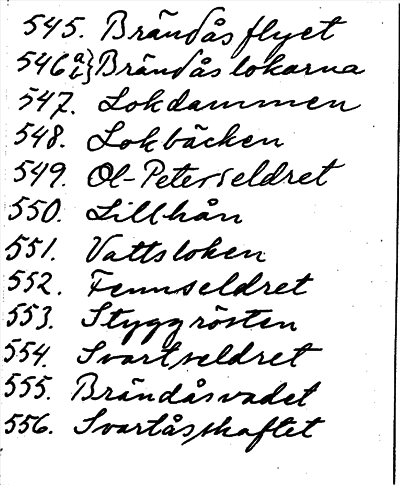 545. Brändåsflyet
546 a b} Brändåslokarna
547. Lokdammen
548. Lokbäcken
549. Ol-Peterseldret
550. Lillhån
551. Vattsloken
552. Fennseldret
553. Styggrösten
554. Svartseldret
555. Brändåsvadet
556. Svartåsskaftet